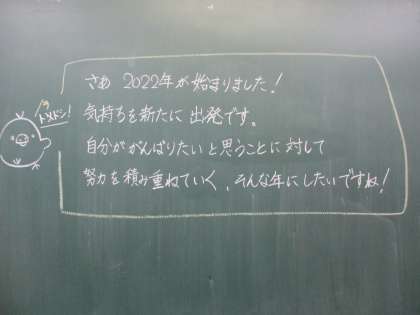 さあ 2022年が始まりました！
気持ちを新たに出発です。
自分ががんばりたいと思うことに対して
努力を積み重ねていく、そんな年にしたいですね！